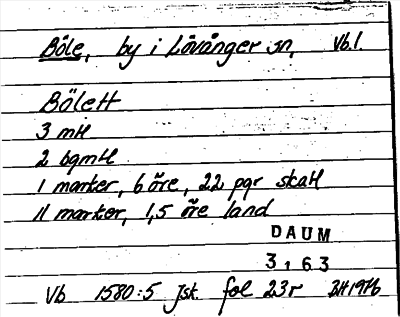 Böle, by i Lövånger sn, Vb.l.
Bölett
3 mtl
2 bgmtl
1 marker, 6 öre, 22 pgr skatt
11 marker, 1,5 öre land
DAUM
3163
Vb 1580:5 Jsk. fol 23r